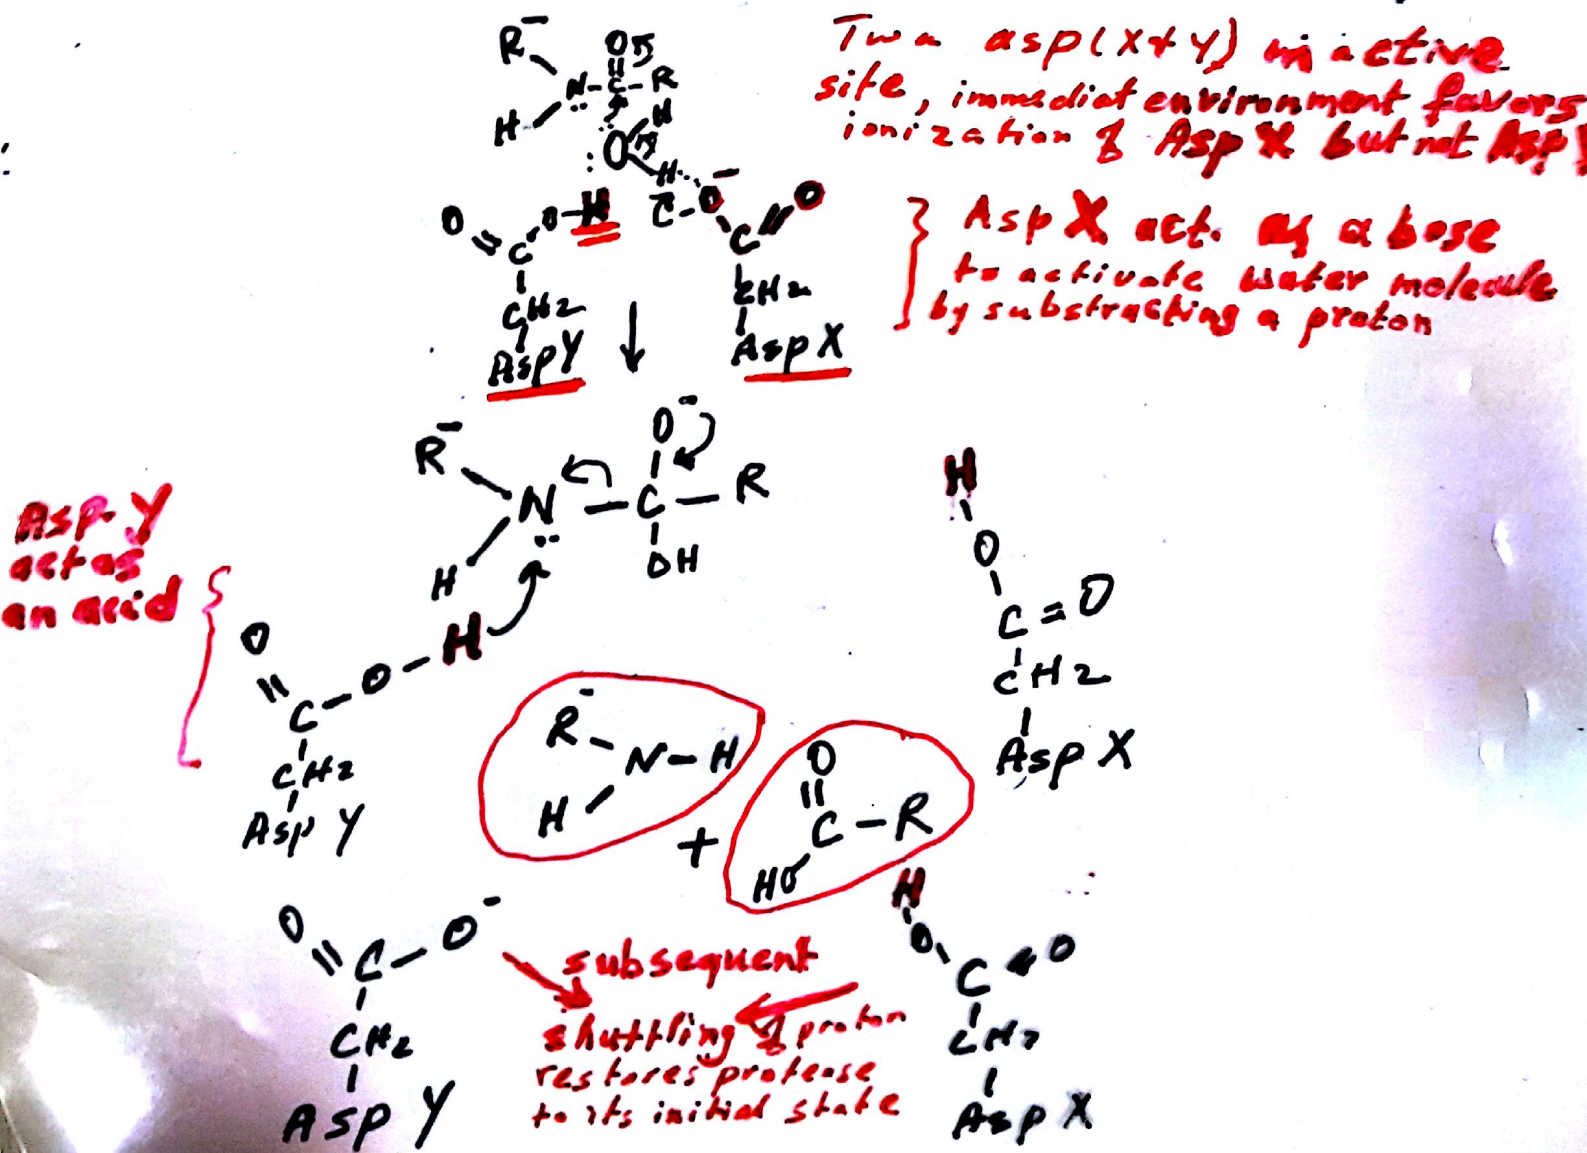 Two asp(X+Y) in active
site, immediat environment favors
ionization of Asp X but not Asp Y
Asp X act. as a base
to activate water molecule
by substracting a proton
R̄
O
H
N
C
R
H
O
H
H
O
O
C
O
H
C
O⁻
C
O
CH2
CH2
Asp Y
Asp X
R̄
O⁻
N
C
R
H
OH
Asp-Y
act as
an acid
O
C
O
H
CH2
Asp Y
H
O
C = O
CH2
Asp X
R̄
N - H
H
+
O
C - R
HO
O
C
O⁻
CH2
Asp Y
H
O
C
O
CH2
Asp X
subsequent
shuttling of proton
restores protease
to its initial state